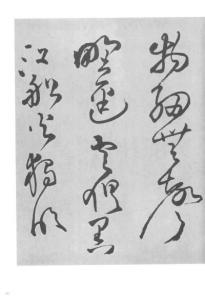 物細無聲
野逕雲俱黑
江船火獨明